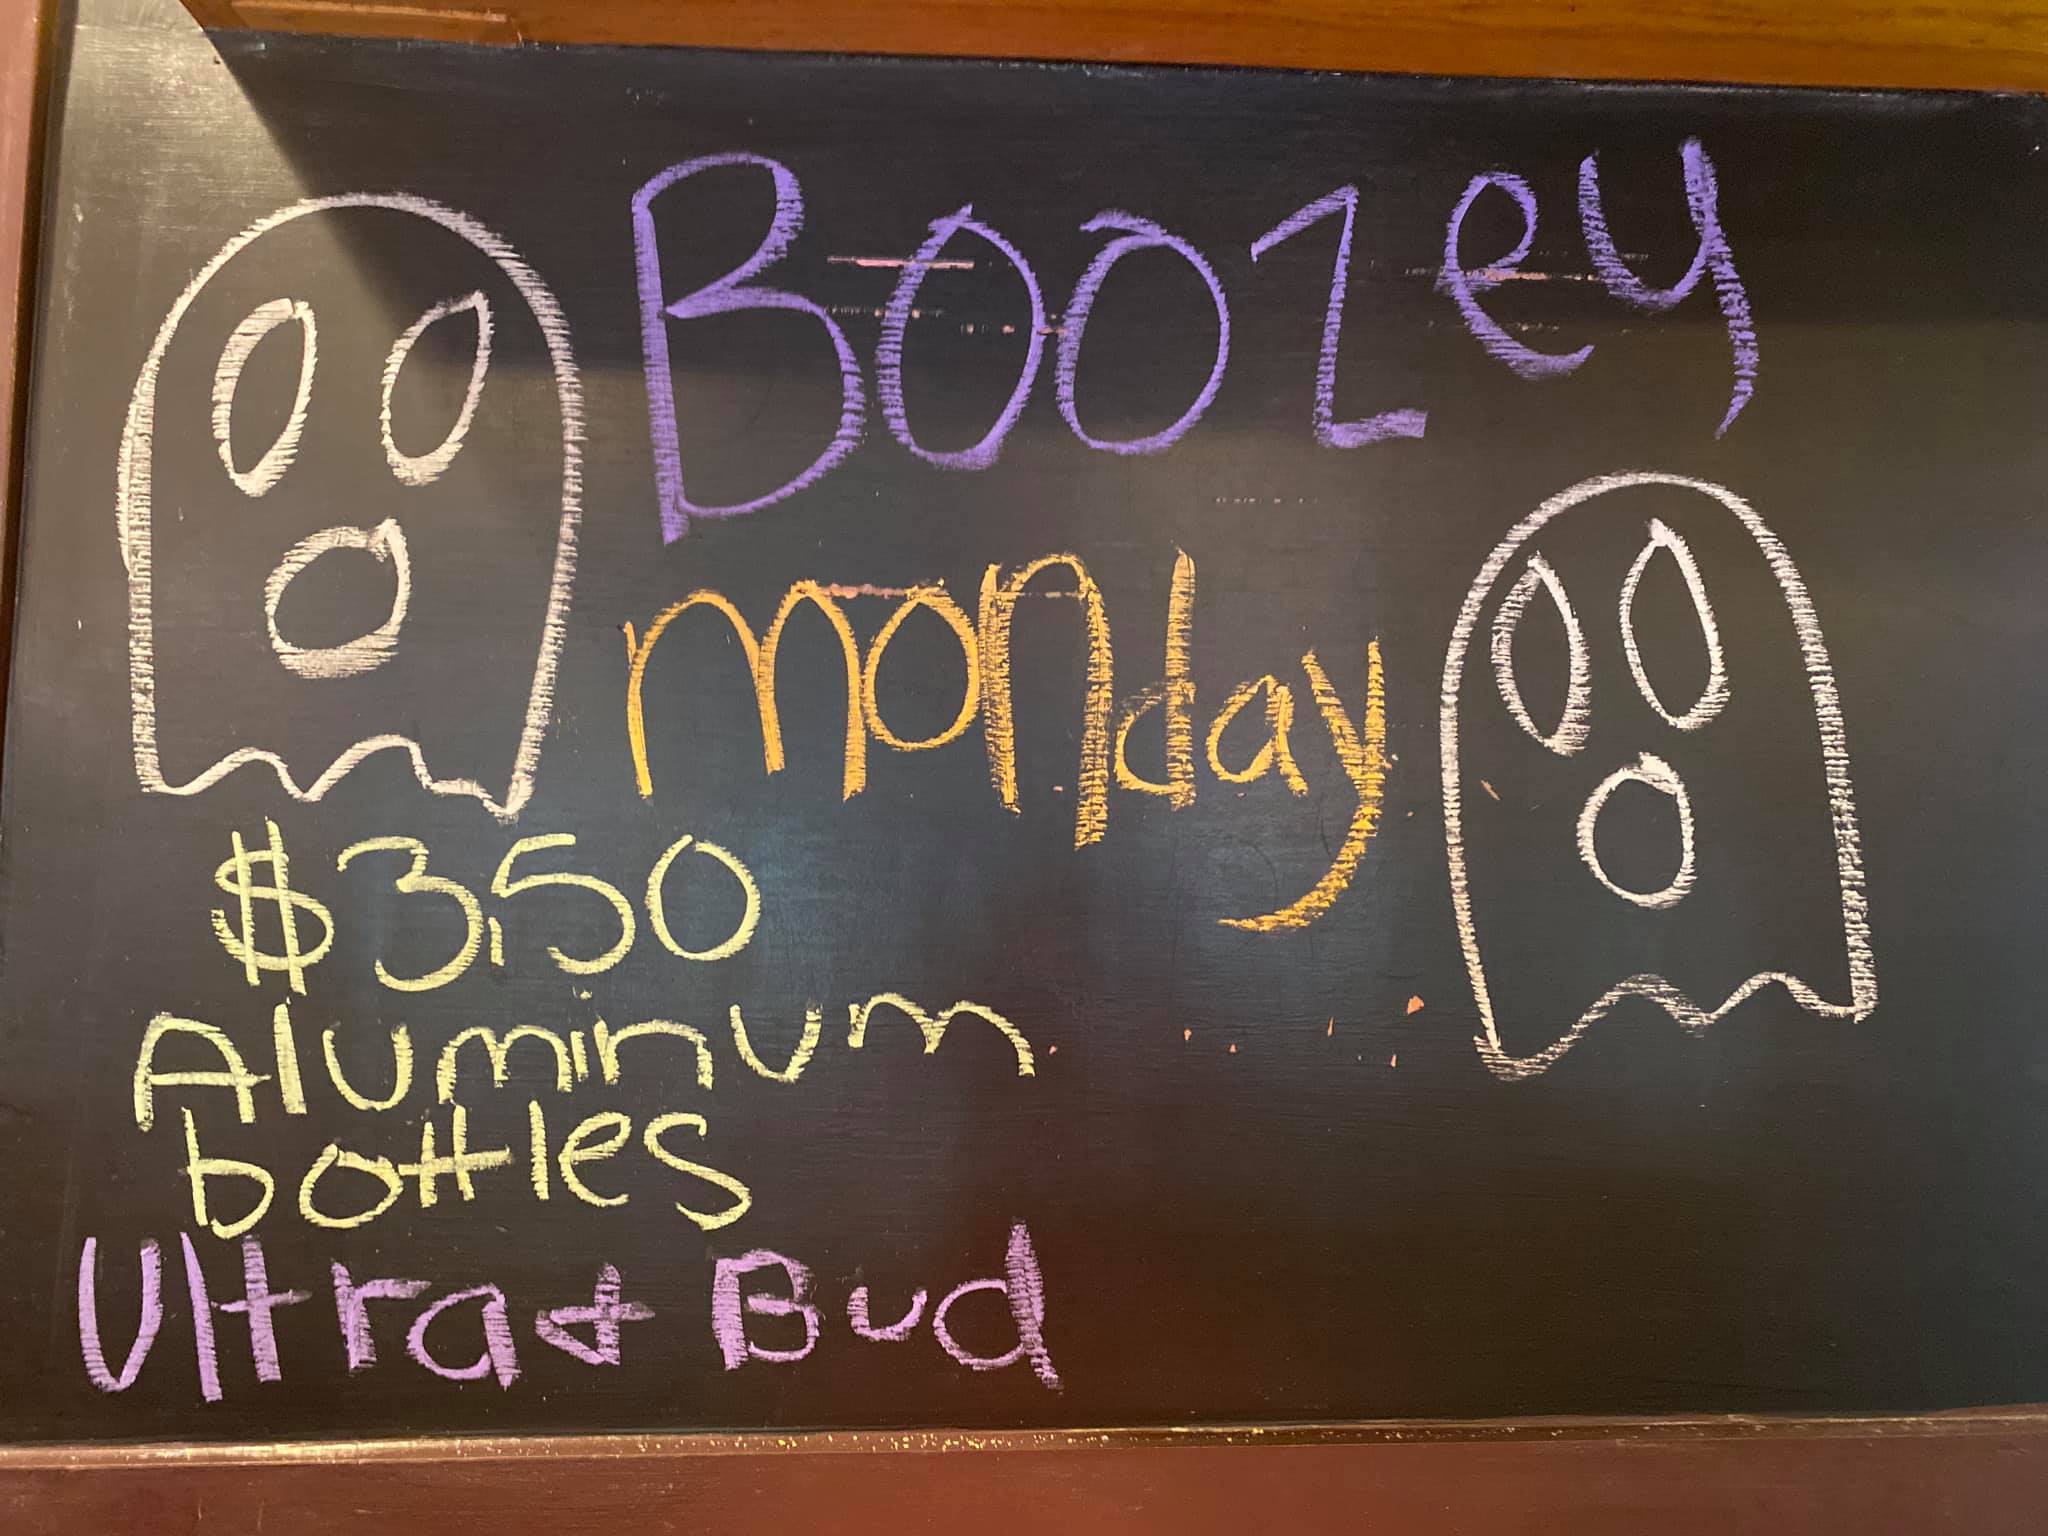 Boozey
monday
$3.50
Aluminum
bottles
Ultra + Bud